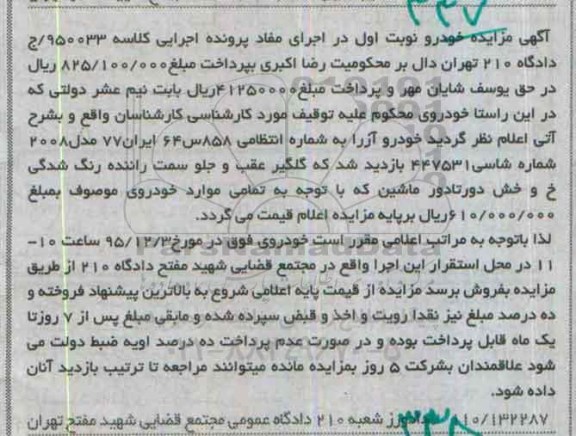 ۳۳۷
آگهی مزایده خودرو نوبت اول در اجرای مفاد پرونده اجرایی کلاسه ۹۵۰۰۳۳/ج
دادگاه ۲۱۰ تهران دال بر محکومیت رضا اکبری بپرداخت مبلغ۸۲۵/۱۰۰/۰۰۰ ریال
در حق یوسف شایان مهر و پرداخت مبلغ۴۱۲۵۰۰۰۰ریال بابت نیم عشر دولتی که
در این راستا خودروی محکوم علیه توقیف مورد کارشناسی کارشناسان واقع و بشرح
آتی اعلام نظر گردید خودرو آزرا به شماره انتظامی ۸۵۸س۶۴ ایران۷۷ مدل۲۰۰۸
شماره شاسی۴۴۷۵۳۱ بازدید شد که گلگیر عقب و جلو سمت راننده رنگ شدگی
خ و خش دورتادور ماشین که با توجه به تمامی موارد خودروی موصوف بمبلغ
۶۱۰/۰۰۰/۰۰۰ریال برپایه مزایده اعلام قیمت می گردد.
لذا باتوجه به مراتب اعلامی مقرر است خودروی فوق در مورخ۹۵/۱۲/۳ ساعت ۱۰-
۱۱ در محل استقرار این اجرا واقع در مجتمع قضایی شهید مفتح دادگاه ۲۱۰ از طریق
مزایده بفروش برسد مزایده از قیمت پایه اعلامی شروع به بالاترین پیشنهاد فروخته و
ده درصد مبلغ نیز نقدا رویت و اخذ و قبض سپرده شده و مابقی مبلغ پس از ۷ روزتا
یک ماه قابل پرداخت بوده و در صورت عدم پرداخت ده درصد اویه ضبط دولت می
شود علاقمندان بشرکت ۵ روز بمزایده مانده میتوانند مراجعه تا ترتیب بازدید آنان
داده شود.
۱۱۰/۱۳۲۲۸۷ دادورز شعبه ۲۱۰ دادگاه عمومی مجتمع قضایی شهید مفتح تهران